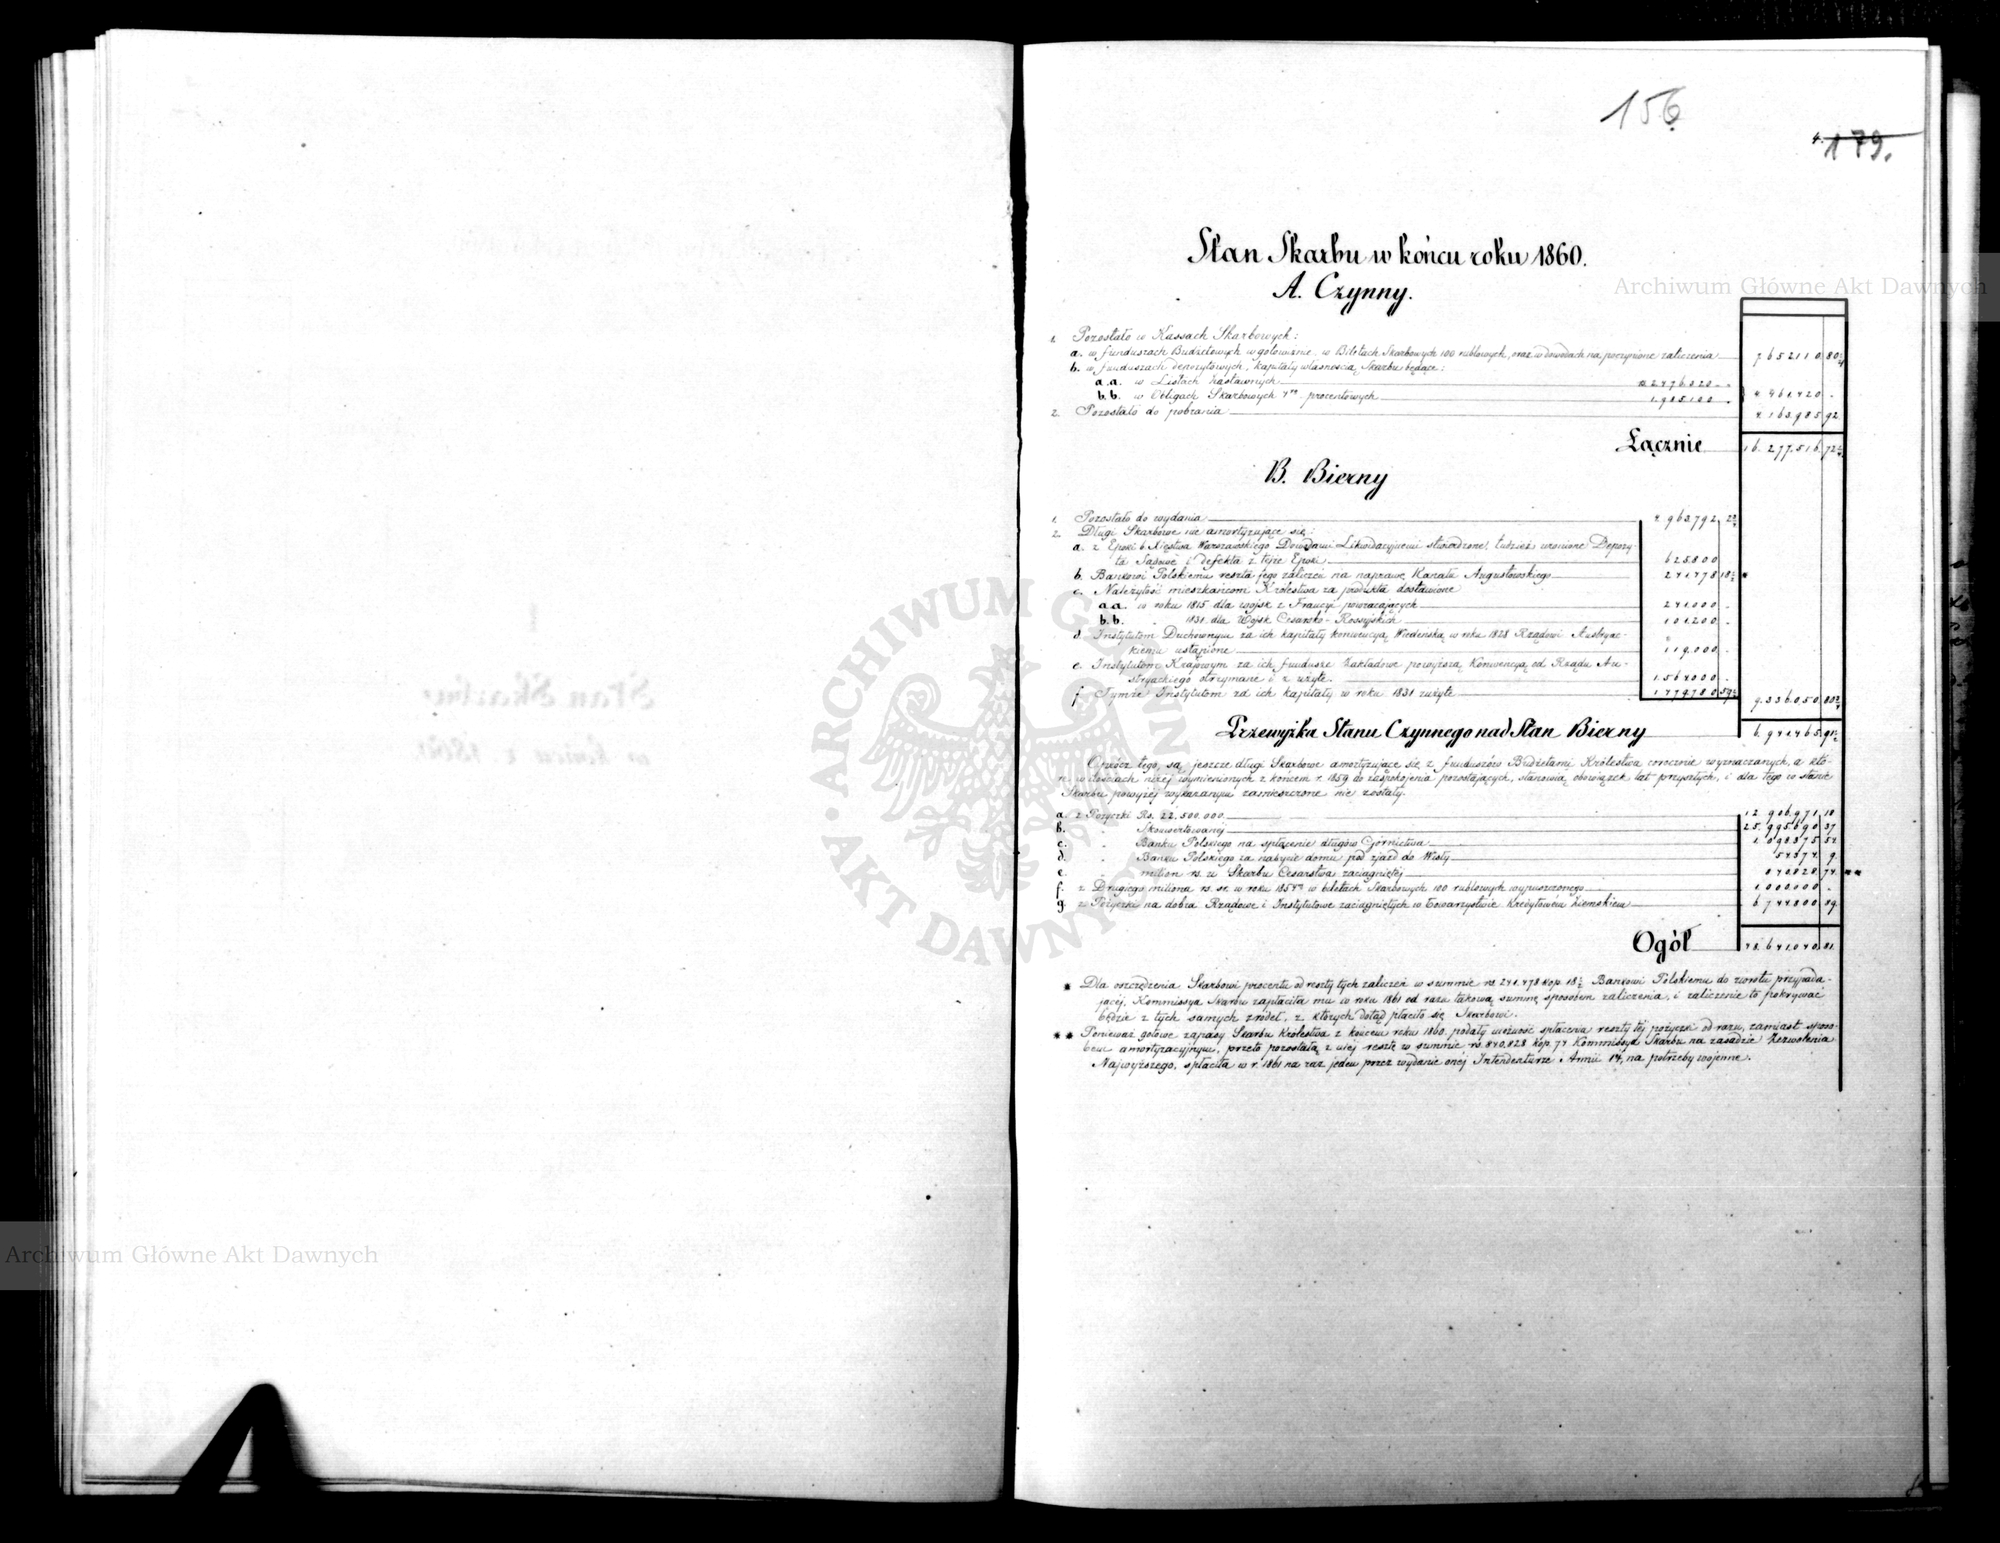 156
4. 179.
Stan Skarbu w końcu roku 1860.
A. Czynny.
1. Pozostało w Kassach Skarbowych:
a. w funduszach Budżetowych w gotowiznie, w Biletach Skarbowych 100 rublowych, oraz w dowodach na poczynione zaliczenia 7.652.110 80
b. w funduszach depozytowych, kapitały własnością Skarbu będące:
a.a. w Listach Zastawnych rs 2.476.320 -
b.b. w Obligach Skarbowych 4ro procentowych 1.985.100 - 4.461.420 -
2. Pozostało do pobrania 4.163.985 92
Łącznie 16.277.516 72
B. Bierny
1. Pozostało do wydania 4.963.792
2. Długi Skarbowe nie amortyzujące się:
a. z Epoki b. Xięstwa Warszawskiego Dowodami Likwidacyjnemi stwierdzone, tudzież wrocone Depozy-
ta Sądowe i defekta z tejże Epoki 625.800
b. Bankowi Polskiemu reszta jego zaliczeń na naprawę Kanału Augustowskiego 241.478 18½ *
c. Należytość mieszkańcom Królestwa za produkta dostawione
aa. w roku 1815 dla wojsk z Francyi powracających 241.000 -
b.b. " 1831 dla Wojsk Cesarsko-Rossyjskich 101.200 -
d. Instytutom Duchownym za ich kapitały konwencyą Wiedeńską w roku 1828 Rządowi Austryac-
kiemu ustąpione 119.000 -
e. Instytutom Krajowym za ich fundusze Zakładowe powyższą Konwencyą od Rządu Au-
stryackiego otrzymane i zużyte. 1.564.000 -
f. Tymże Instytutom za ich kapitały w roku 1831 zużyte 1.479.780 59 9.336.050 80
Przewyżka Stanu Czynnego nad Stan Bierny 6.941.465 91
Oprócz tego, są jeszcze długi Skarbowe amortyzujące się z funduszów Budżetami Królestwa corocznie wyznaczanych, a któ-
re w ilościach niżej wymienionych z końcem r. 1859 do zaspokojenia pozostających, stanowią obowiązek lat przyszłych, i dla tego w stanie
Skarbu powyżej wykazanym zamieszczone nie zostały.
a. z Pożyczki Rs. 22,500,000. 12.906.971 18
b. " Skonwertowanej 25.995.690 37
c. " Banku Polskiego na spłacenie długów Górnictwa 1.098.375 52
d. " Banku Polskiego za nabycie domu pod zjazd do Wisły 54.374 9
e. " milion rs. u Skarbu Cesarstwa zaciągniętej 840.828 74 **
f. z Drugiego miliona rs. sr. w roku 1854m w biletach Skarbowych 100 rublowych wypuszczonego 1.000.000 -
g. z Pożyczki na dobra Rządowe i Instytutowe zaciągniętych w Towarzystwie Kredytowem Ziemskiem 6.744.800 89
Ogół 48.641.040 81
* Dla oszczędzenia Skarbowi procentu od reszty tych zaliczeń w summie rs 241.478 kop. 18½ Bankowi Polskiemu do zwrotu przypada-
jącej, Kommissya Skarbu zapłaciła mu w roku 1861 od razu takową summę sposobem zaliczenia, i zaliczenie to pokrywać
będzie z tych samych źródeł, z których dotąd płaciło się Skarbowi.
** Ponieważ gotowe zapasy Skarbu Królestwa z końcem roku 1860. podały możność spłacenia reszty tej pożyczki od razu, zamiast sposo-
bem amortyzacyjnym, przeto pozostałą z niej resztę w summie rs 840,828 kop. 74 Kommissya Skarbu na zasadzie Zezwolenia
Najwyższego, spłaciła w r. 1861 na raz jeden przez wydanie onej Intendenturze 1 Armii na potrzeby wojenne.
Archiwum Główne Akt Dawnych
Archiwum Główne Akt Dawnych
ARCHIWUM GŁÓWNE AKT DAWNYCH